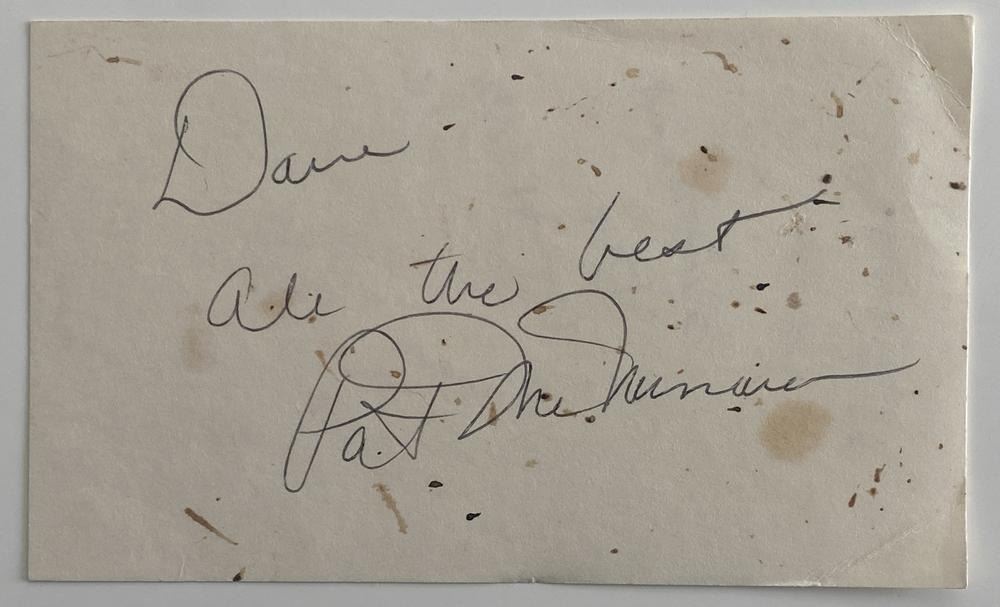 Dave
All the best
Pat McNamara